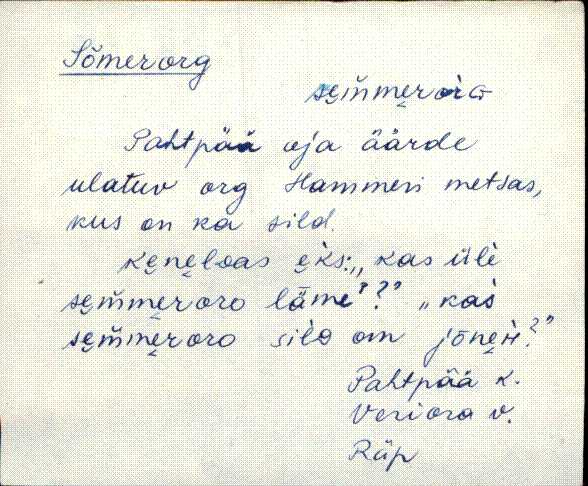 Sõmerorg
se̮m̆me̮rorɢ
Pahtpää oja äärde
ulatuv org Hammeri metsas,
kus on ka sild.
ke̮ne̮lᴅas e̮ks: „kas üle
se̮m̆me̮roro lāme'?” „kas
se̮m̆me̮roro silᴅ om jõne̮ʜ?”
Pahtpää k.
Veriora v.
Räp